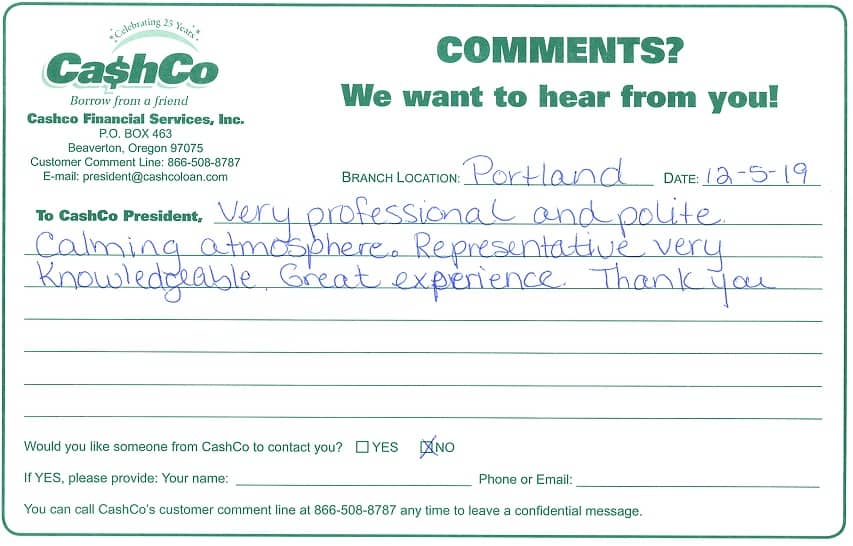 Celebrating 25 Years
Ca$hCo
Borrow from a friend
Cashco Financial Services, Inc.
P.O. BOX 463
Beaverton, Oregon 97075
Customer Comment Line: 866-508-8787
E-mail: president@cashcoloan.com
COMMENTS?
We want to hear from you!
BRANCH LOCATION: Portland DATE: 12-5-19
To CashCo President, Very professional and polite.
Calming atmosphere. Representative very
Knowledgeable. Great experience. Thank you
Would you like someone from CashCo to contact you? ☐ YES ☒ NO
If YES, please provide: Your name: Phone or Email:
You can call CashCo's customer comment line at 866-508-8787 any time to leave a confidential message.